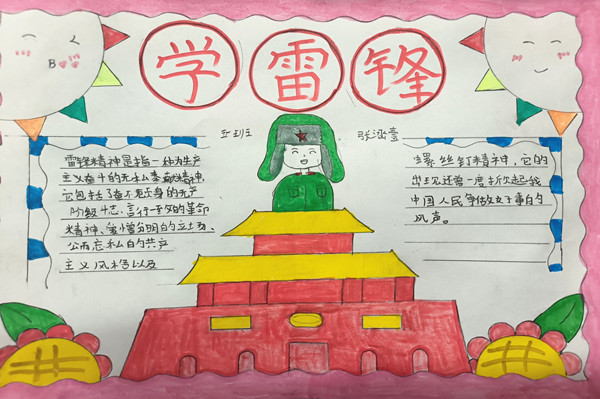 学雷锋
五班 张涵萱
雷锋精神是指一种为共产
主义奋斗的无私奉献精神,
它包括了奋不顾身的无产
阶级斗志、言行一致的革命
精神、爱憎分明的立场、
公而忘私的共产
主义风格以及
螺丝钉精神,它的
出现还曾一度掀起我
中国人民争做好事的
风声。